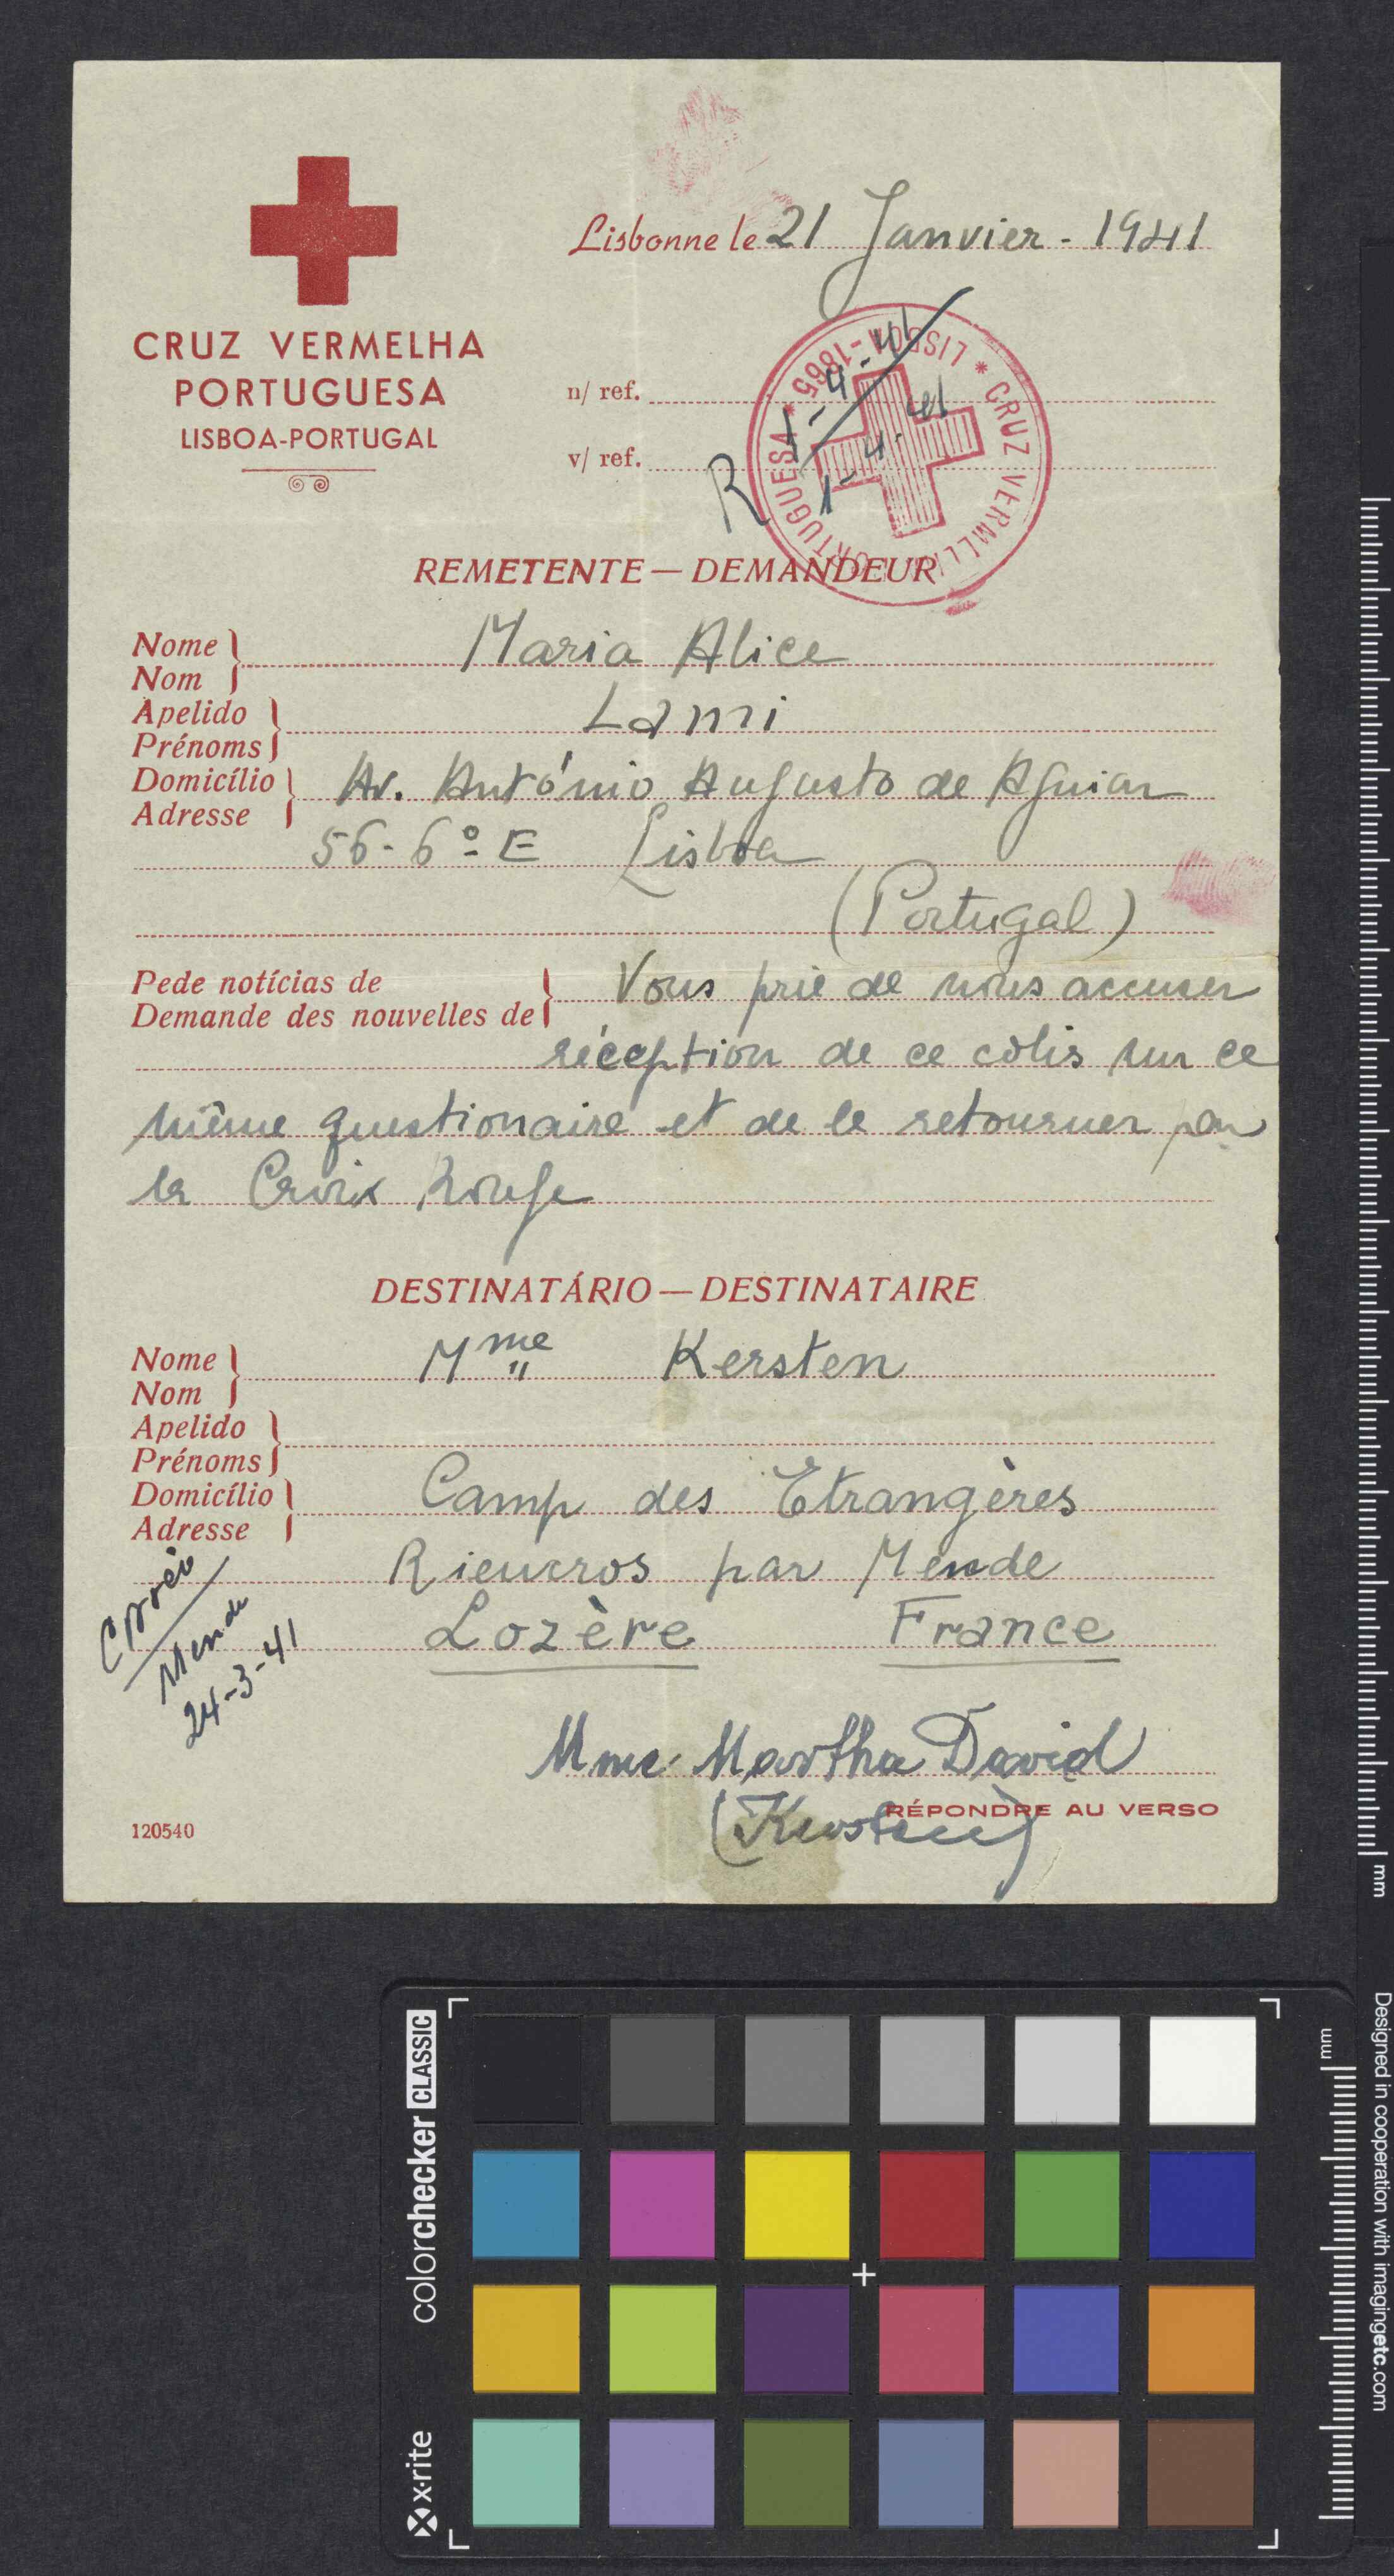 Lisbonne le 21 Janvier - 1941
CRUZ VERMELHA
PORTUGUESA
LISBOA-PORTUGAL
n/ ref.
v/ ref.
* CRUZ VERMELHA PORTUGUESA * LISBOA-1865
R 1-4-41
1-4-41
REMETENTE — DEMANDEUR
Nome
Nom
Maria Alice
Apelido
Prénoms
Lami
Domicílio
Adresse
Av. António Augusto de Aguiar
56-6º E Lisboa
(Portugal)
Pede notícias de
Demande des nouvelles de
Vous prie de nous accuser
réception de ce colis sur ce
même questionaire et de le retourner par
la Croix Rouge
DESTINATÁRIO — DESTINATAIRE
Nome
Nom
Mme Kersten
Apelido
Prénoms
Domicílio
Adresse
Camp des Etrangères
Rieucros par Mende
Lozère France
Correio
Mende
24-3-41
Mme. Martha David
(Kersten)
RÉPONDRE AU VERSO
120540
mm
Designed in cooperation with imagingetc.com
mm
colorchecker CLASSIC
x-rite